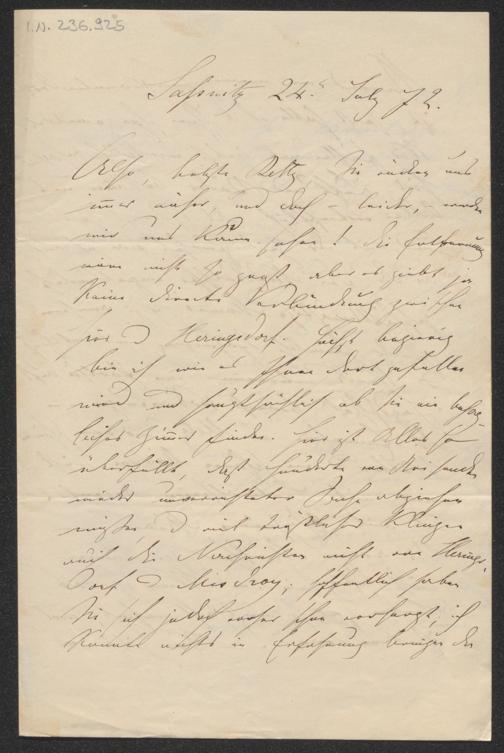 I.N. 236.925
Sassnitz 24. July 72.
Also, beste Betty, Sie rücken uns
immer näher, und doch – leider, – werden
wir uns kaum sehen! Die Entfernung
wäre nicht so groß, aber es giebt ja
keine directe Verbindung zwischen
hier u Heringsdorf. Höchst begierig
bin ich wie es Ihnen dort gefallen
wird und hauptsächlich ob Sie ein behag-
liches Zimmer finden. Hier ist Alles so
überfüllt, daß Hunderte von Reisenden
wieder unverrichteter Sache abziehen
müssen u viel tröstlicher klingen
auch die Nachrichten nicht von Herings-
dorf u Misdroy; hoffentlich haben
Sie sich jedoch vorher schon vorgesorgt; ich
konnte nichts in Erfahrung bringen da